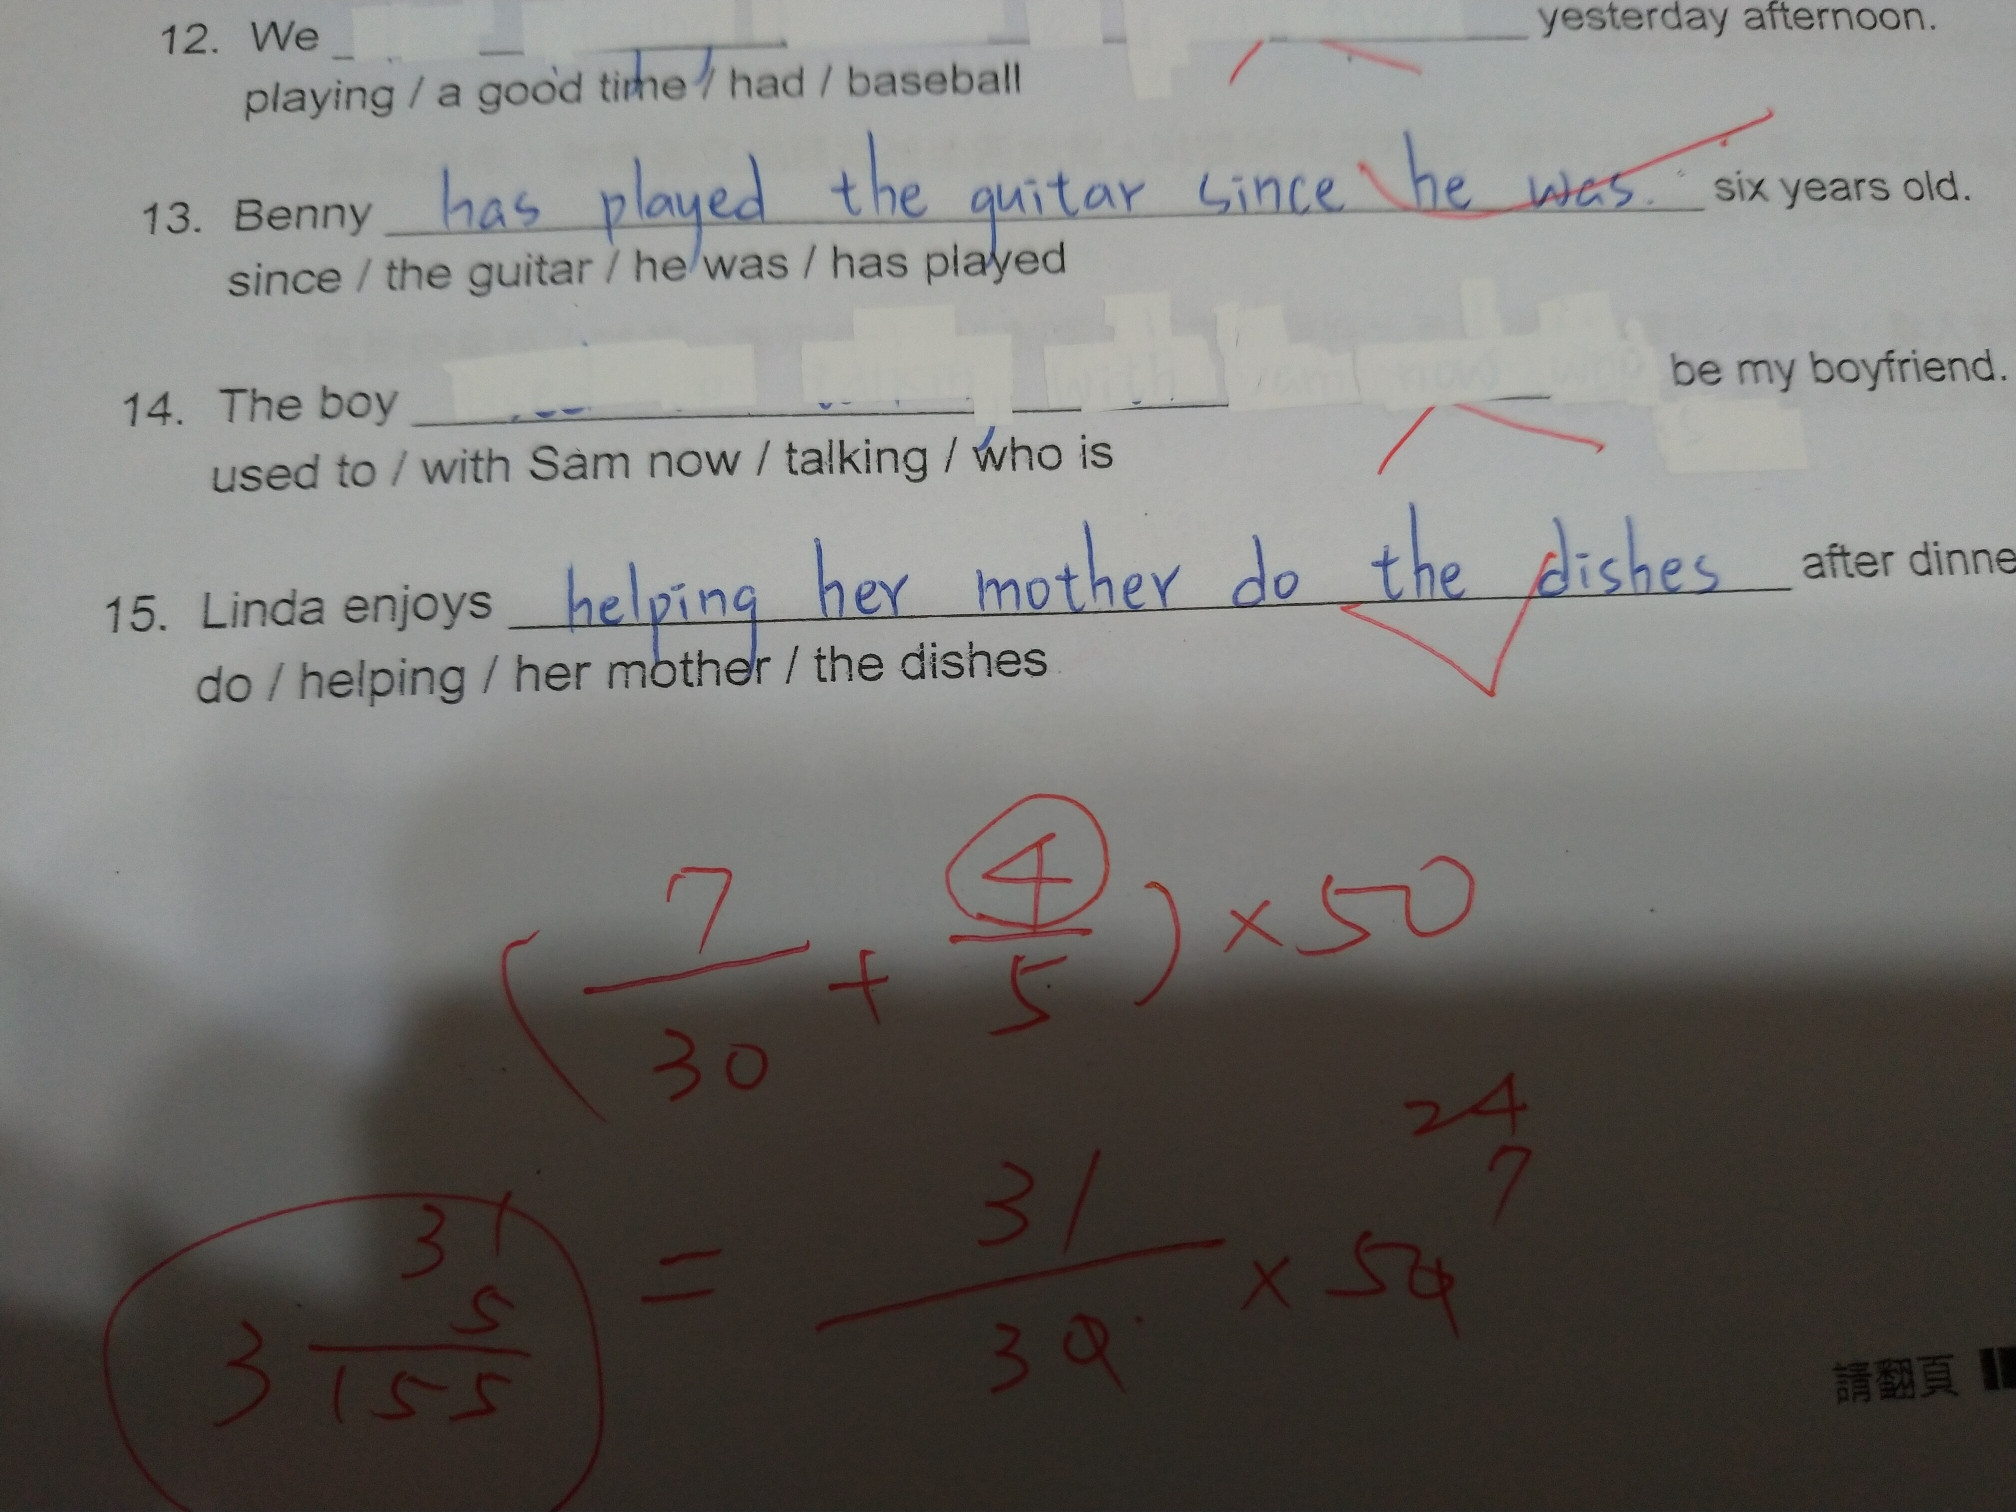 12. We yesterday afternoon.
playing / a good time / had / baseball
13. Benny has played the guitar since he was. six years old.
since / the guitar / he was / has played
14. The boy be my boyfriend.
used to / with Sam now / talking / who is
15. Linda enjoys helping her mother do the dishes after dinne
do / helping / her mother / the dishes
( 7/30 + 4/5 ) × 50
24
7
= 31/30 × 50
31
5
3 155
請翻頁